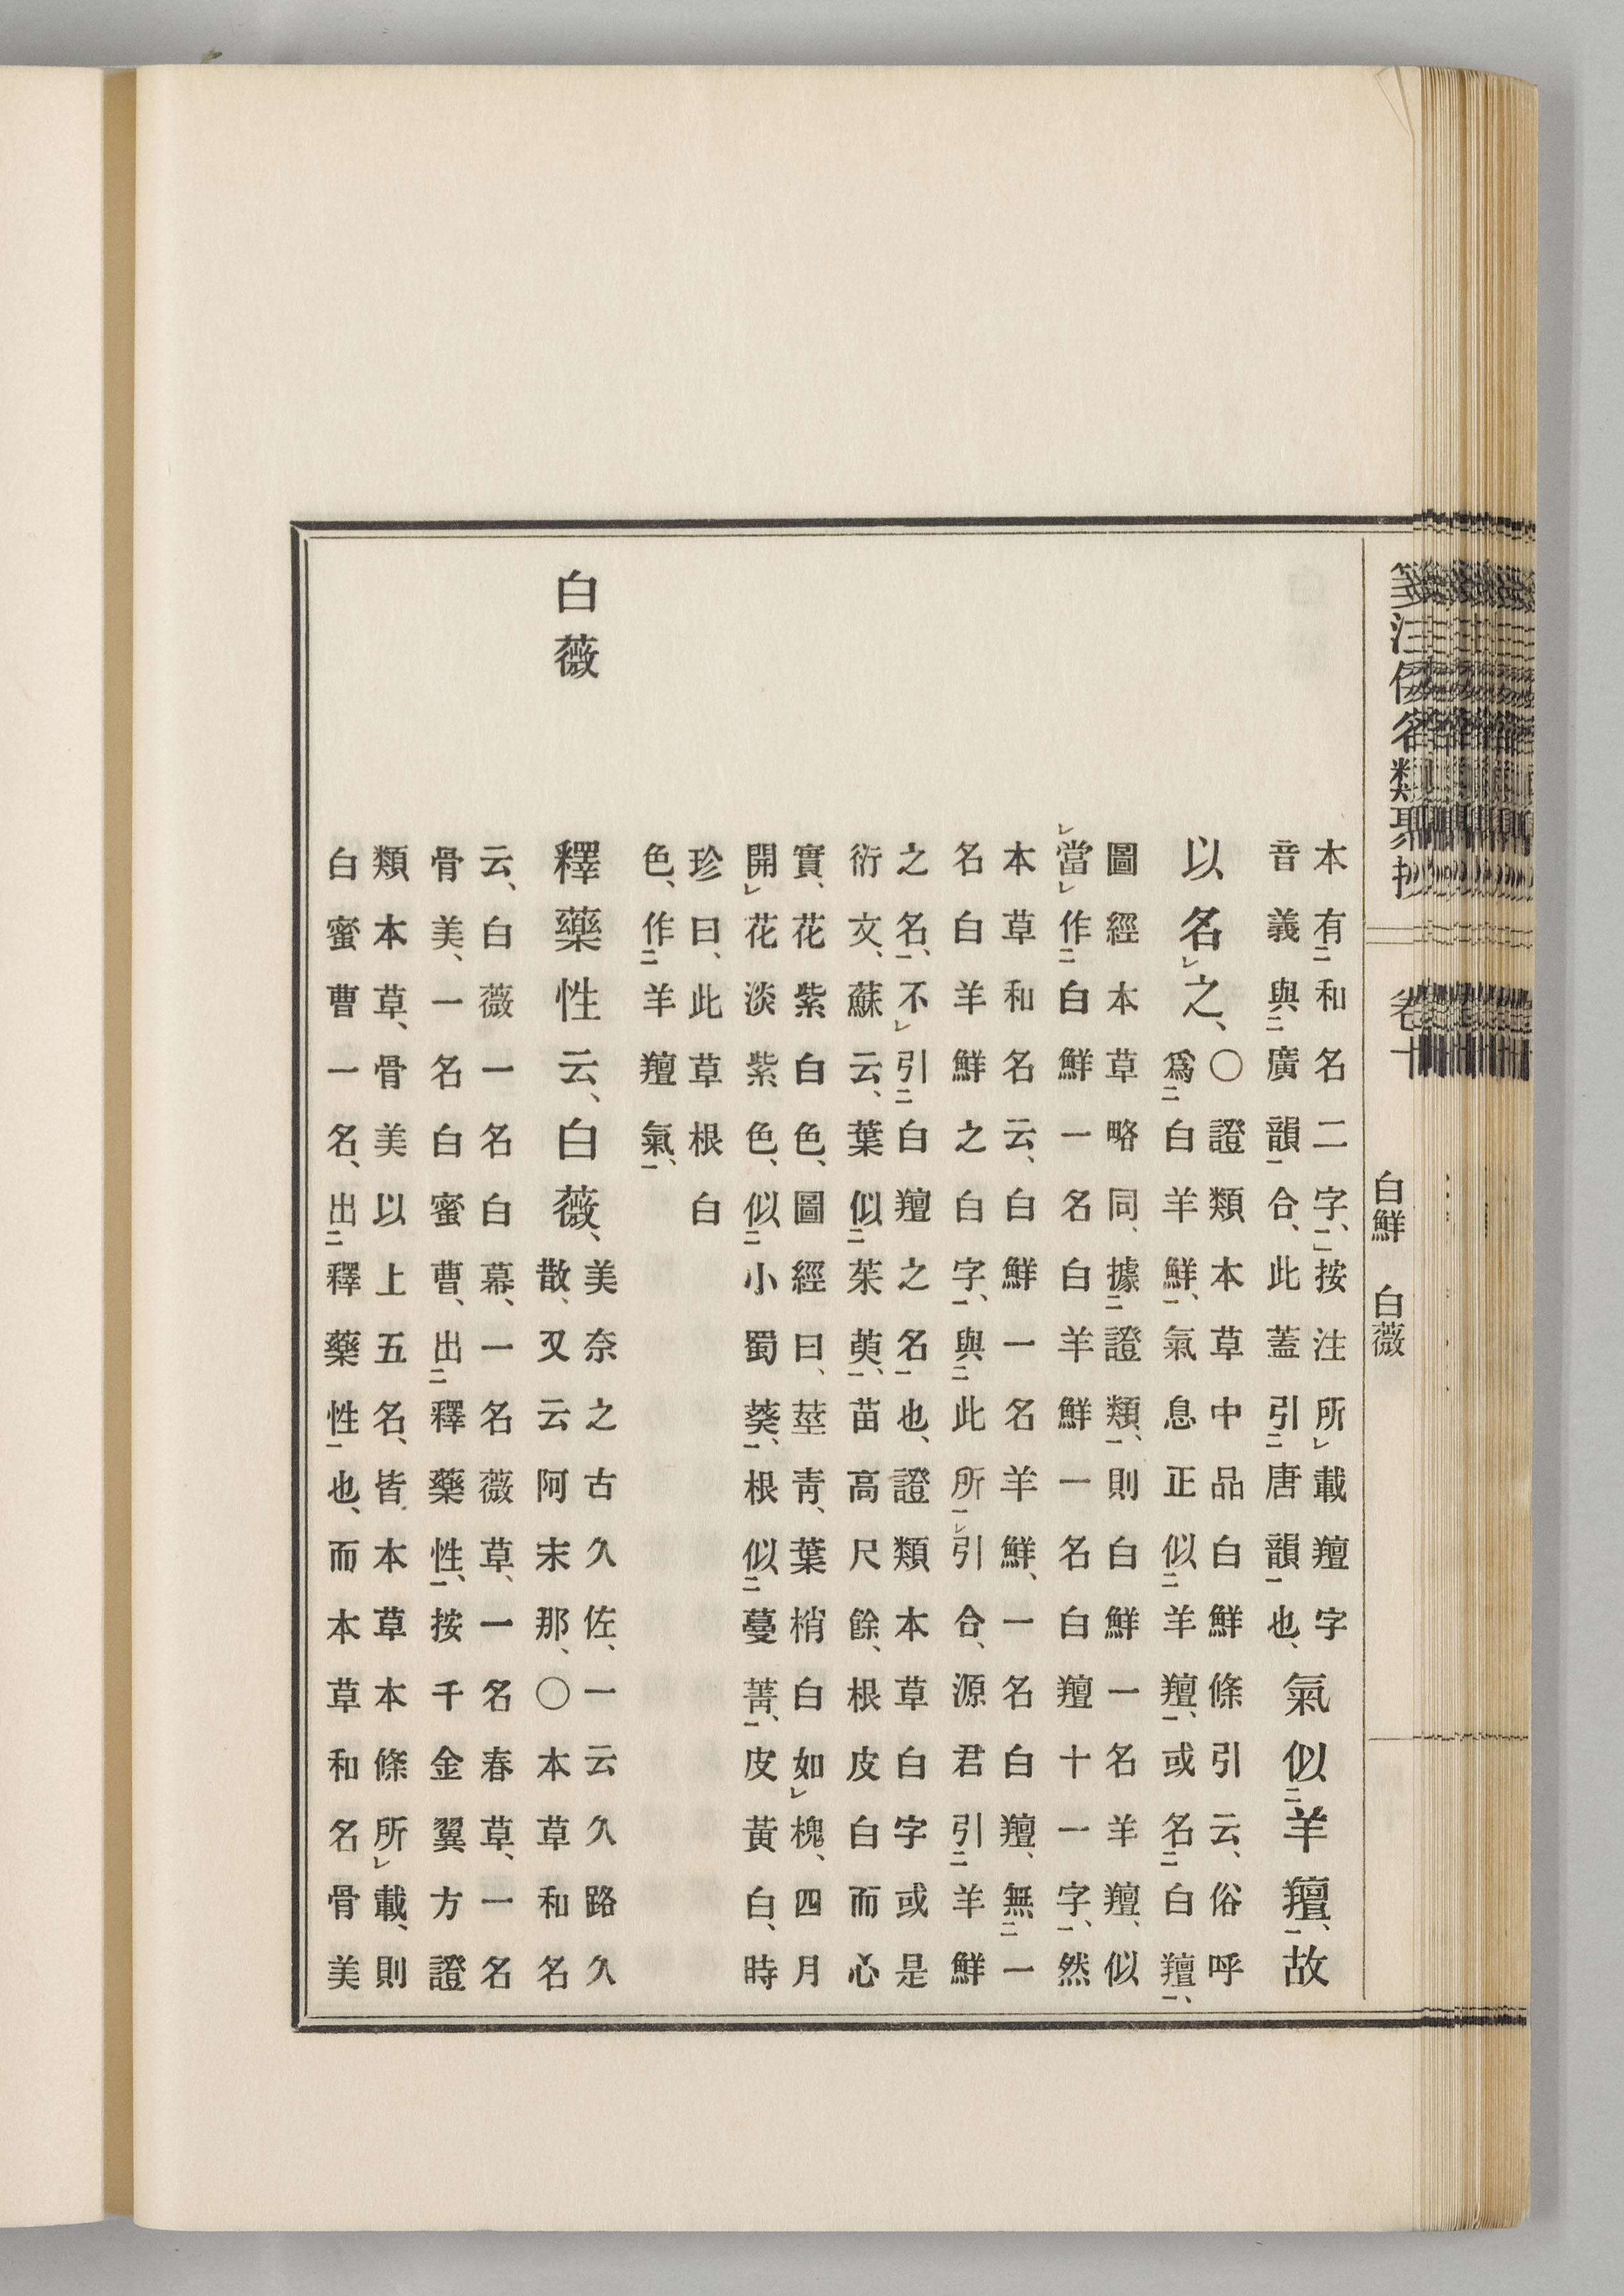 箋注倭名類聚抄 卷十 白鮮 白薇
本有和名二字、按注所載羶字
音義與廣韻合、此蓋引唐韻也、
氣似羊羶、故
以名之、
○證類本草中品白鮮條引云、俗呼
爲白羊鮮、氣息正似羊羶、或名白羶、
圖經本草略同、據證類、則白鮮一名羊羶、似
當作白鮮一名白羊鮮一名白羶十一字、然
本草和名云、白鮮一名羊鮮、一名白羶、無一
名白羊鮮之白字、與此所引合、源君引羊鮮
之名、不引白羶之名也、證類本草白字或是
衍文、蘇云、葉似茱萸、苗高尺餘、根皮白而心
實、花紫白色、圖經曰、莖靑、葉梢白如槐、四月
開花淡紫色、似小蜀葵、根似蔓菁、皮黃白、時
珍曰、此草根白
色、作羊羶氣、
白薇
釋藥性云、白薇、
美奈之古久佐、一云久路久
散、又云阿末那、○本草和名
云、白薇一名白幕、一名薇草、一名春草、一名
骨美、一名白蜜曹、出釋藥性、按千金翼方證
類本草、骨美以上五名、皆本草本條所載、則
白蜜曹一名、出釋藥性也、而本草和名骨美